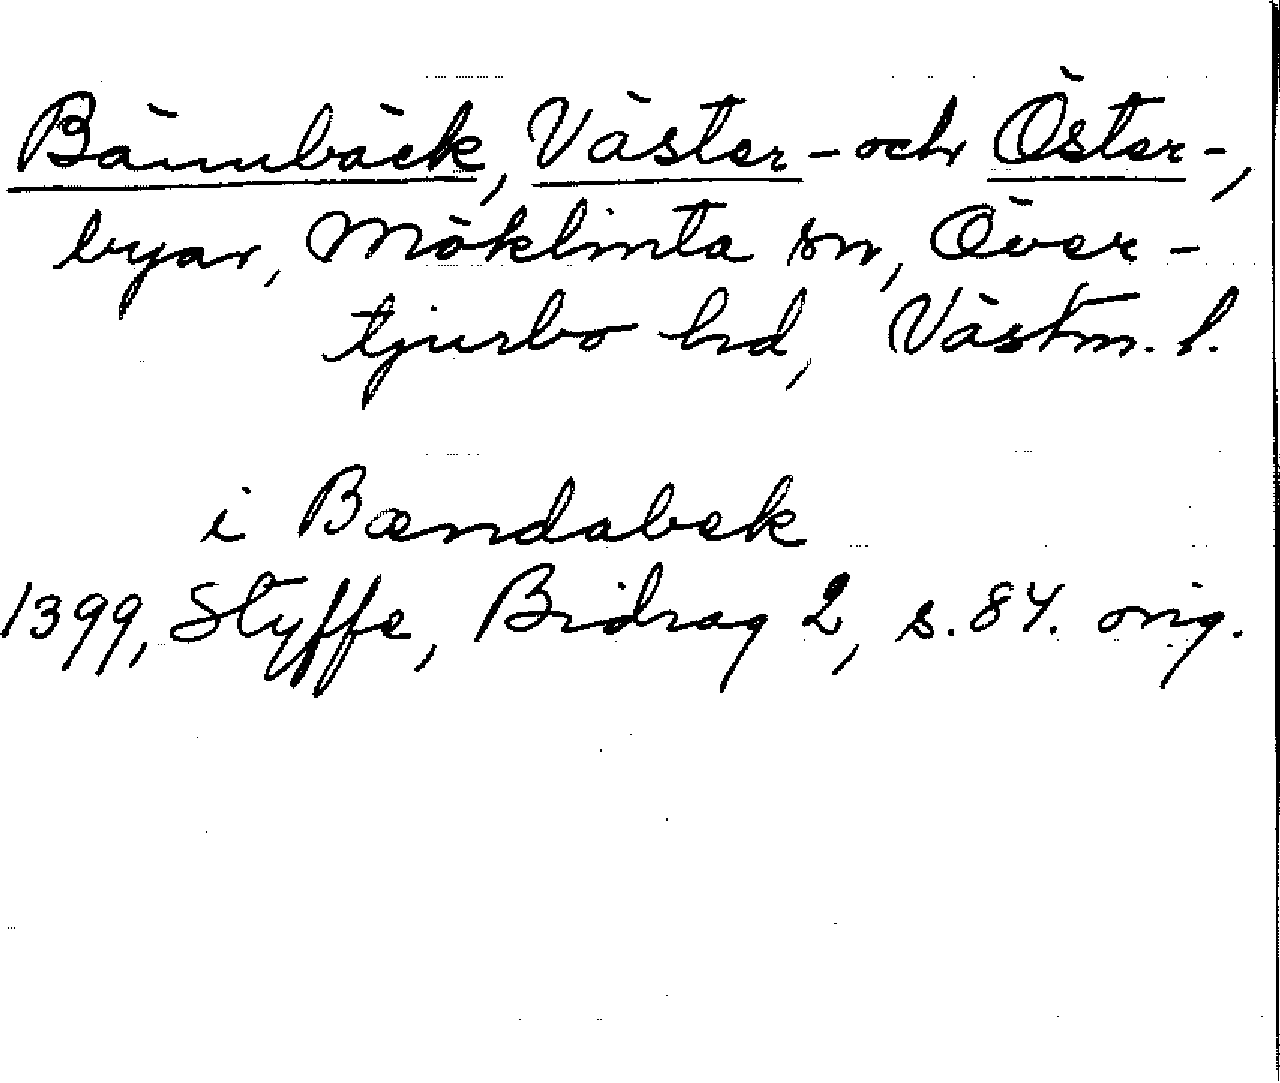 Bännbäck, Väster- och Öster-,
byar, Möklinta sn, Över-
tjurbo hd, Västm. l.
i Bændabek
1399, Styffe, Bidrag 2, s. 84. orig.